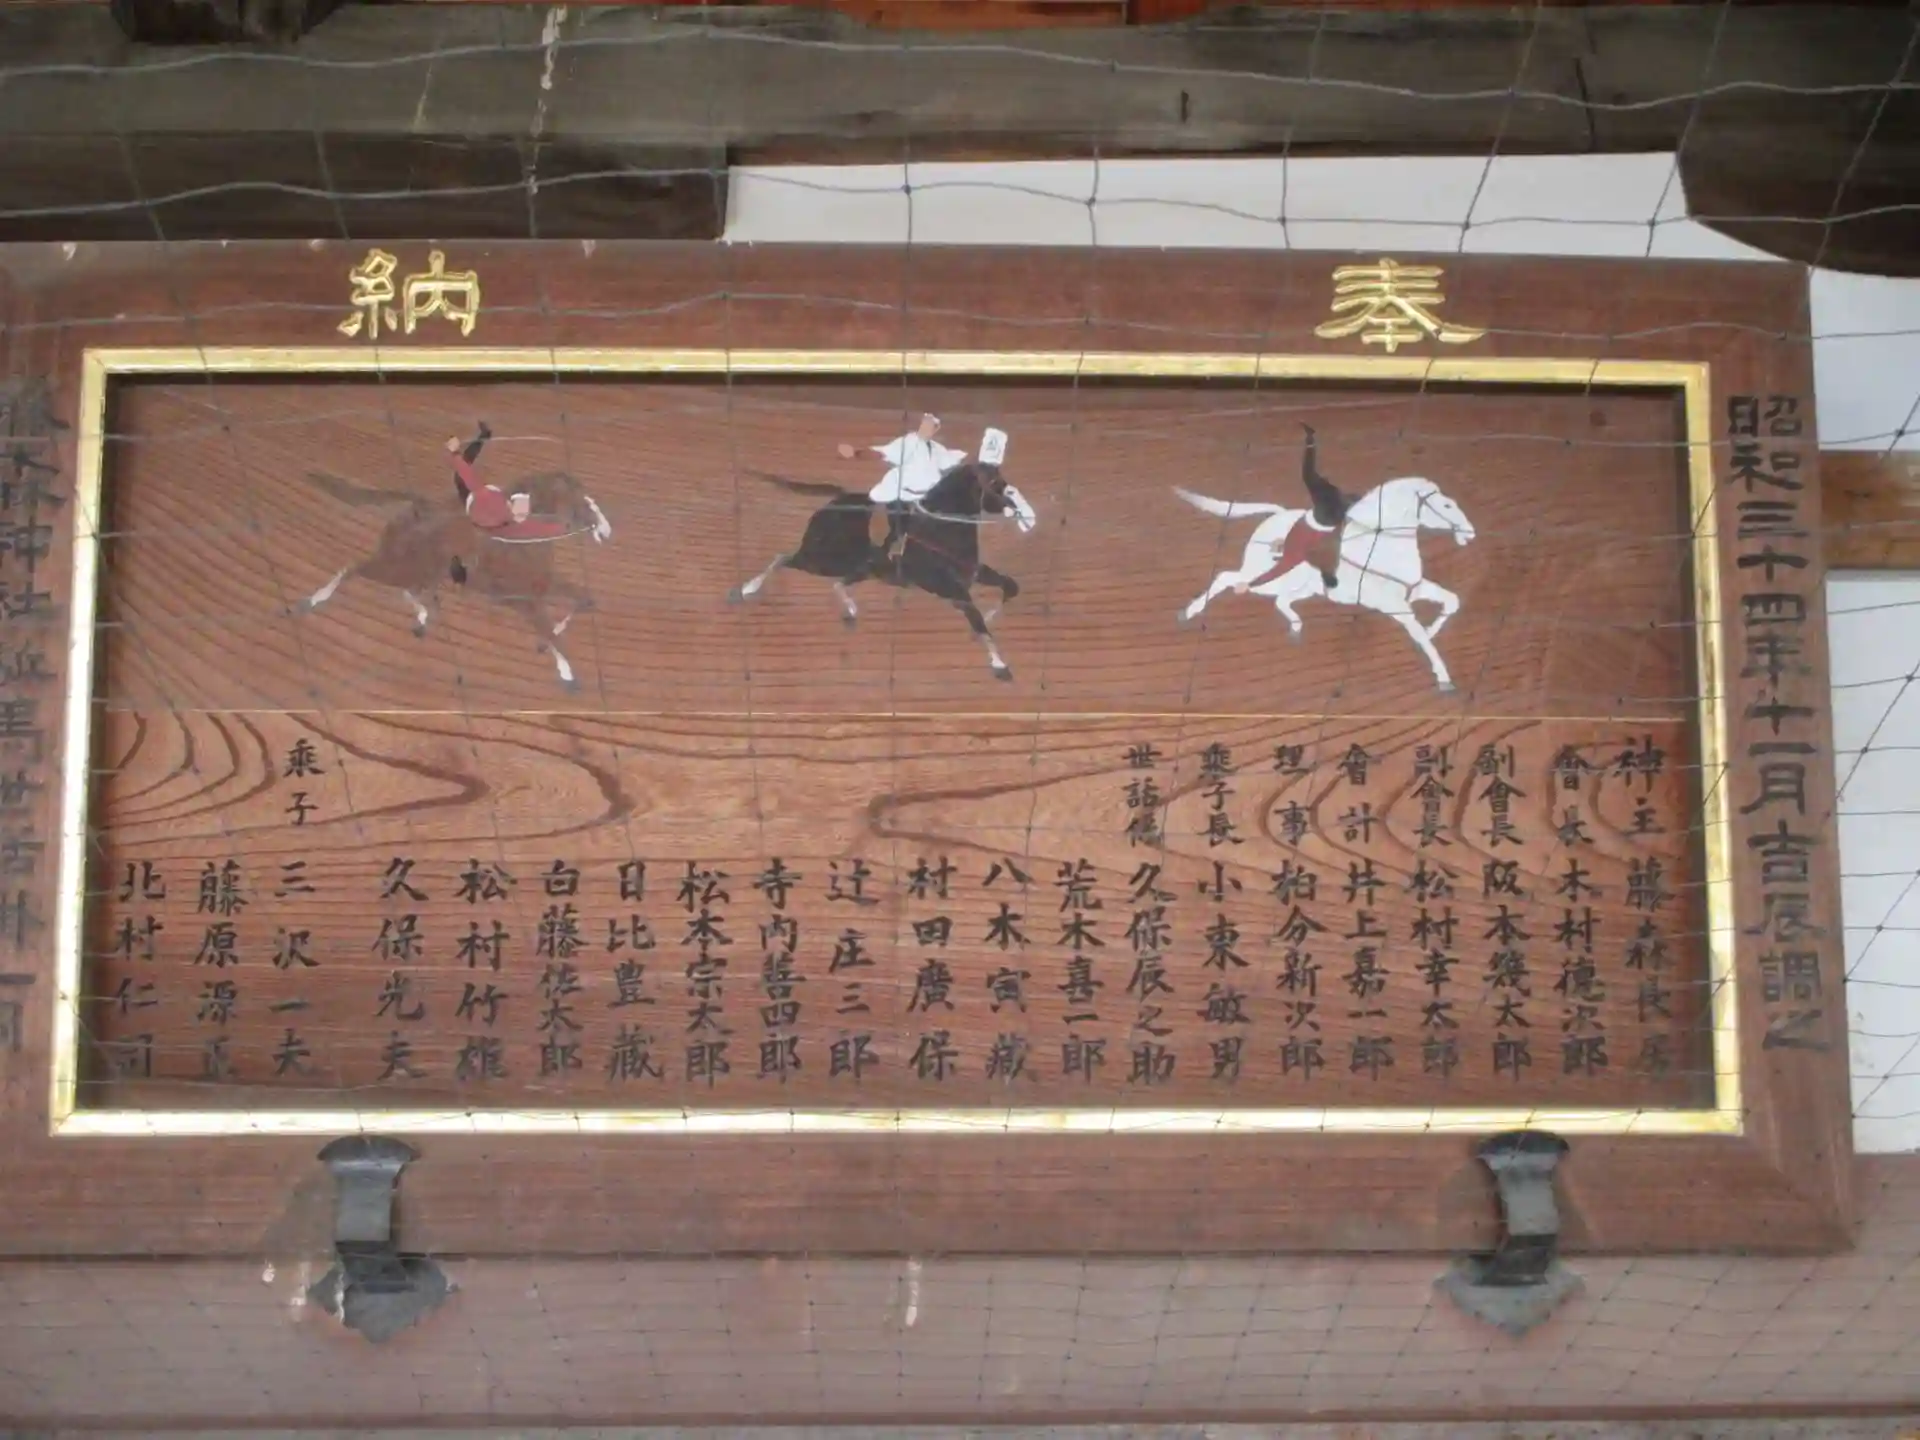 奉納
昭和三十四年十一月吉辰調之
神主 藤森長
會長 木村德次郎
副會長 阪本幾太郎
副會長 松村幸太郎
會計 井上嘉一郎
理事 柏分新次郎
乗子長 小東敏男
世話係 久保辰之助
荒木喜一郎
八木寅藏
村田廣保
辻庄三郎
寺内善四郎
松本宗太郎
日比豊藏
白藤佐太郎
松村竹雄
久保光夫
乗子 三沢一夫
藤原源正
北村仁司
神社